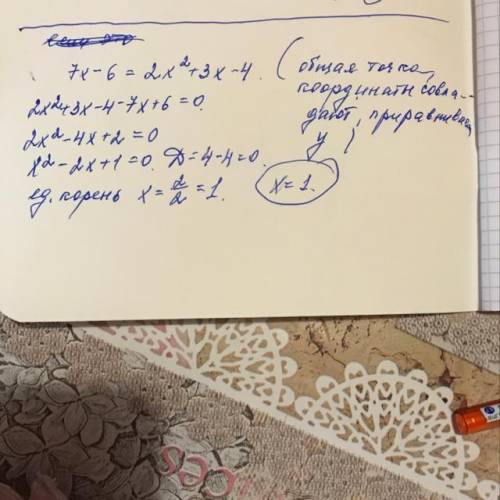 7x-6=2x²+3x-4.
(общая точка,
координаты совпа-
дают, приравниваем
y)
2x²+3x-4-7x+6=0.
2x²-4x+2=0
x²-2x+1=0. D=4-4=0.
ед. корень x=2/2=1.
x=1.